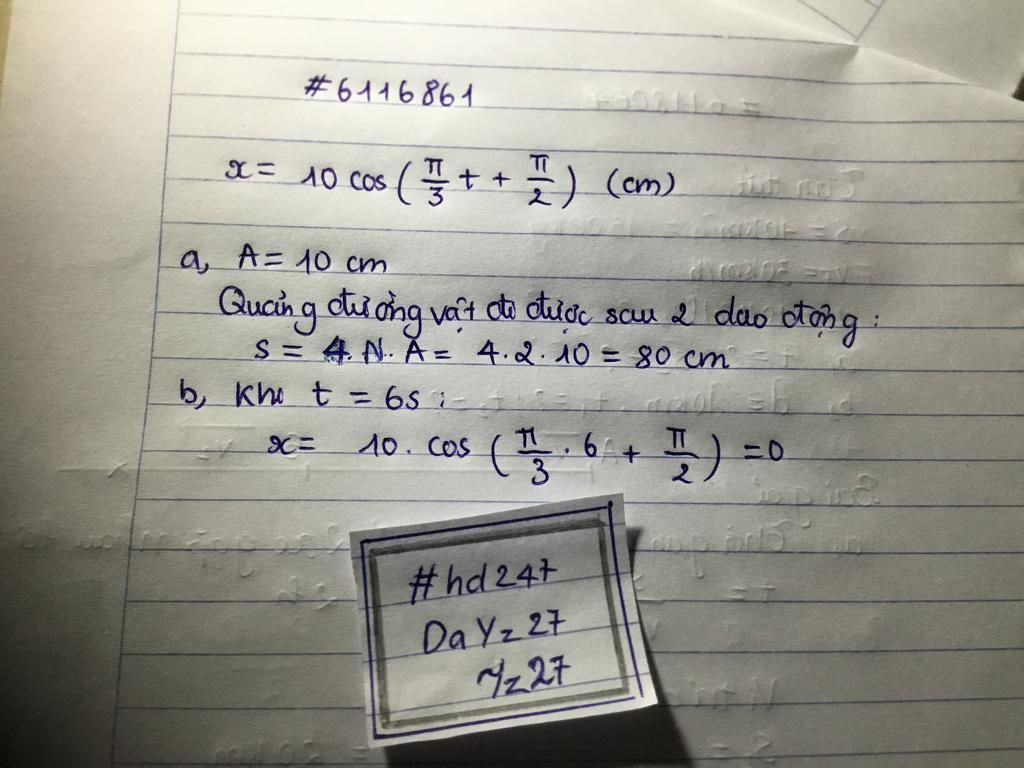 #6116861
x = 10 cos ( π/3 t + π/2 ) (cm)
a, A = 10 cm
Quảng đường vật đi được sau 2 dao động :
S = 4. N. A = 4. 2. 10 = 80 cm
b, Khi t = 6s :
x = 10. cos ( π/3 . 6 + π/2 ) = 0
#hd247
DaYz27
Yz27